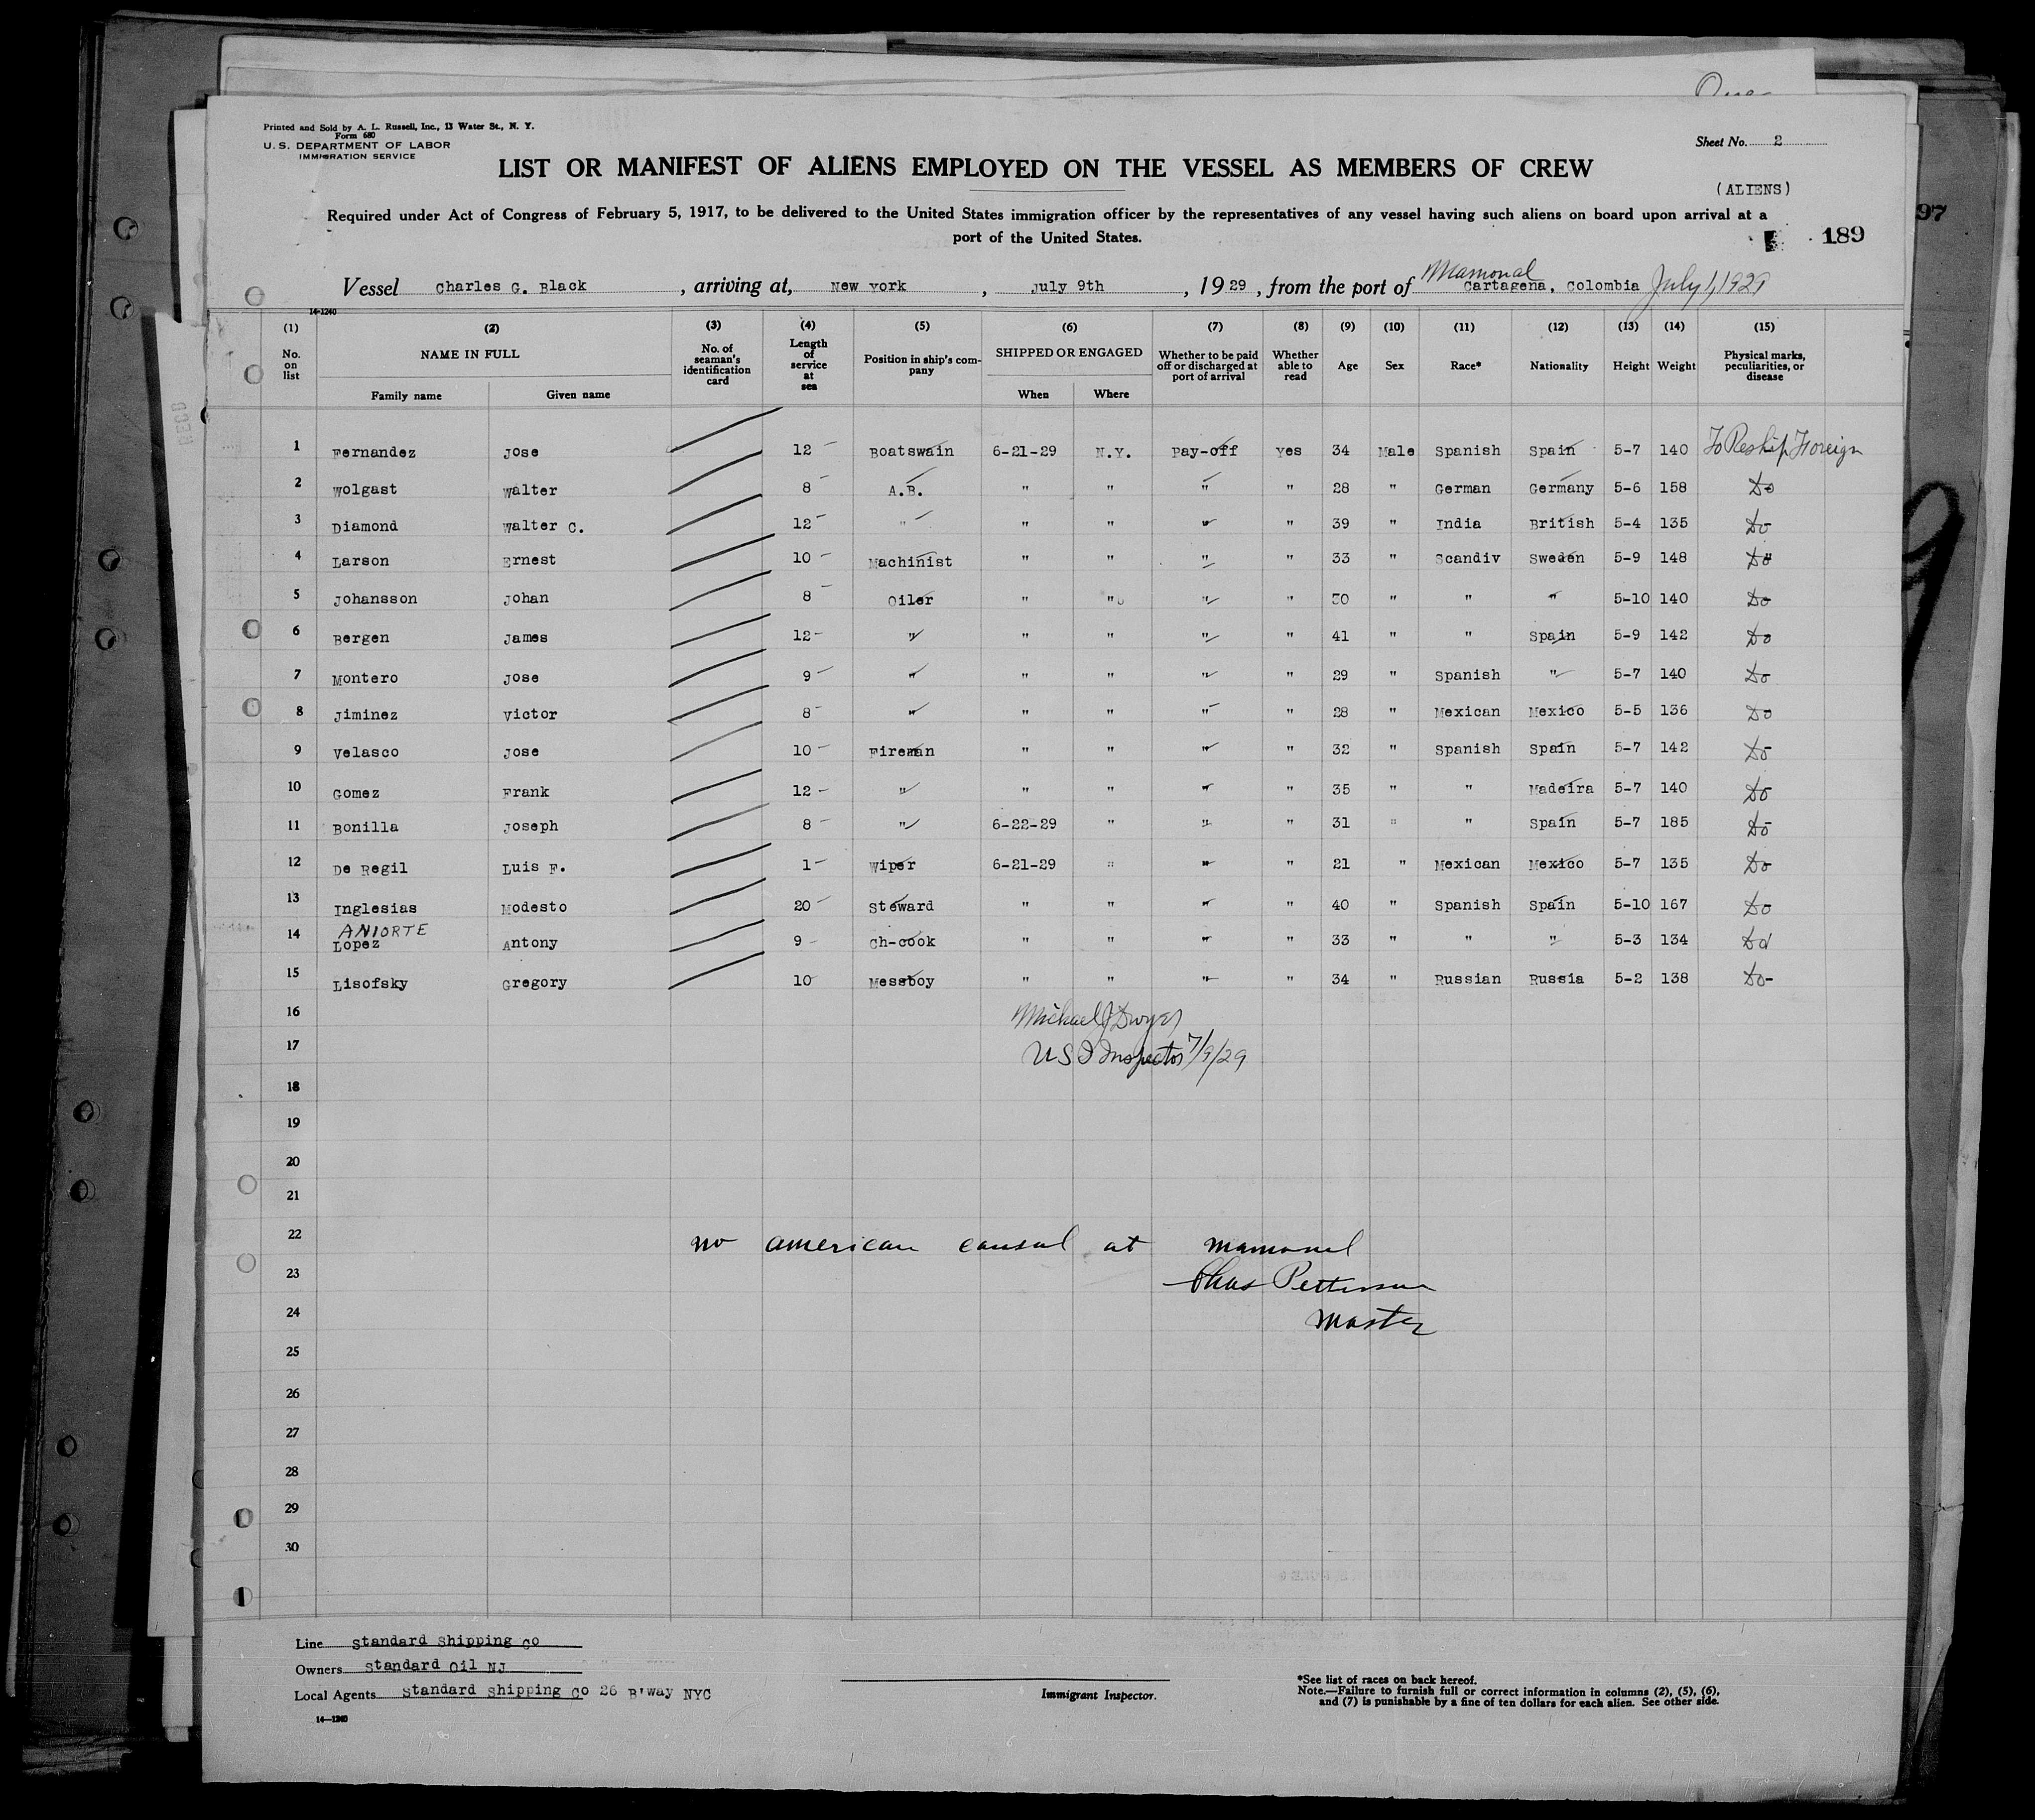 Printed and Sold by A. L. Russell, Inc., 13 Water St., N. Y.
Form 680
U. S. DEPARTMENT OF LABOR
IMMIGRATION SERVICE
Sheet No. 2
LIST OR MANIFEST OF ALIENS EMPLOYED ON THE VESSEL AS MEMBERS OF CREW
(ALIENS)
Required under Act of Congress of February 5, 1917, to be delivered to the United States immigration officer by the representatives of any vessel having such aliens on board upon arrival at a
port of the United States.
97
189
Mamonal
Vessel Charles G. Black , arriving at, New York , July 9th , 1929 , from the port of Cartagena, Colombia July 1, 1929
14-1240
(1) (2) (3) (4) (5) (6) (7) (8) (9) (10) (11) (12) (13) (14) (15)
No. on list NAME IN FULL No. of seaman's identification card Length of service at sea Position in ship's company SHIPPED OR ENGAGED Whether to be paid off or discharged at port of arrival Whether able to read Age Sex Race* Nationality Height Weight Physical marks, peculiarities, or disease
Family name Given name When Where
1 Fernandez Jose 12 Boatswain 6-21-29 N.Y. Pay-off Yes 34 Male Spanish Spain 5-7 140 To Reship Foreign
2 Wolgast Walter 8 A.B. " " " " 28 " German Germany 5-6 158 Do
3 Diamond Walter C. 12 " " " " " 39 " India British 5-4 135 Do
4 Larson Ernest 10 Machinist " " " " 33 " Scandiv Sweden 5-9 148 Do
5 Johansson Johan 8 Oiler " " " " 50 " " " 5-10 140 Do
6 Bergen James 12 " " " " " 41 " " Spain 5-9 142 Do
7 Montero Jose 9 " " " " " 29 " Spanish " 5-7 140 Do
8 Jiminez Victor 8 " " " " " 28 " Mexican Mexico 5-5 136 Do
9 Velasco Jose 10 Fireman " " " " 32 " Spanish Spain 5-7 142 Do
10 Gomez Frank 12 " " " " " 35 " " Madeira 5-7 140 Do
11 Bonilla Joseph 8 " 6-22-29 " " " 31 " " Spain 5-7 185 Do
12 De Regil Luis F. 1 Wiper 6-21-29 " " " 21 " Mexican Mexico 5-7 135 Do
13 Inglesias Modesto 20 Steward " " " " 40 " Spanish Spain 5-10 167 Do
ANIORTE
14 Lopez Antony 9 Ch-cook " " " " 33 " " " 5-3 134 Do
15 Lisofsky Gregory 10 Messboy " " " " 34 " Russian Russia 5-2 138 Do
16 Michael J Dwyer
17 U S I Inspector 7/9/29
18
19
20
21
22 no american consul at mamonal
23 Chas Petterson
24 Master
25
26
27
28
29
30
Line Standard Shipping Co
Owners Standard Oil NJ
Local Agents Standard Shipping Co 26 B'way NYC
14-1240
Immigrant Inspector.
*See list of races on back hereof.
Note.—Failure to furnish full or correct information in columns (2), (5), (6),
and (7) is punishable by a fine of ten dollars for each alien. See other side.